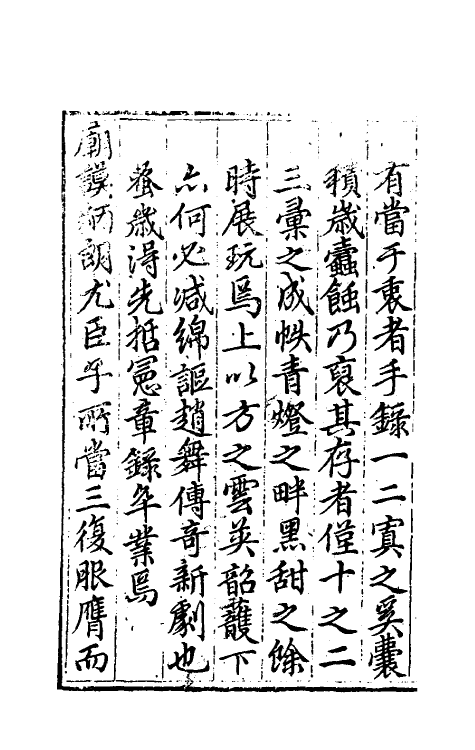 有當于衷者手錄一二寘之奚囊
積歲蠹蝕乃裒其存者僅十之二
三彚之成帙青燈之畔黑甜之餘
時展玩焉上以方之雲英韶頀下
亦何必減綿謳趙舞傳奇新劇也
蚤歲得先拓憲章錄卒業焉
廟謨炳朗尤臣乎所當三復服膺而